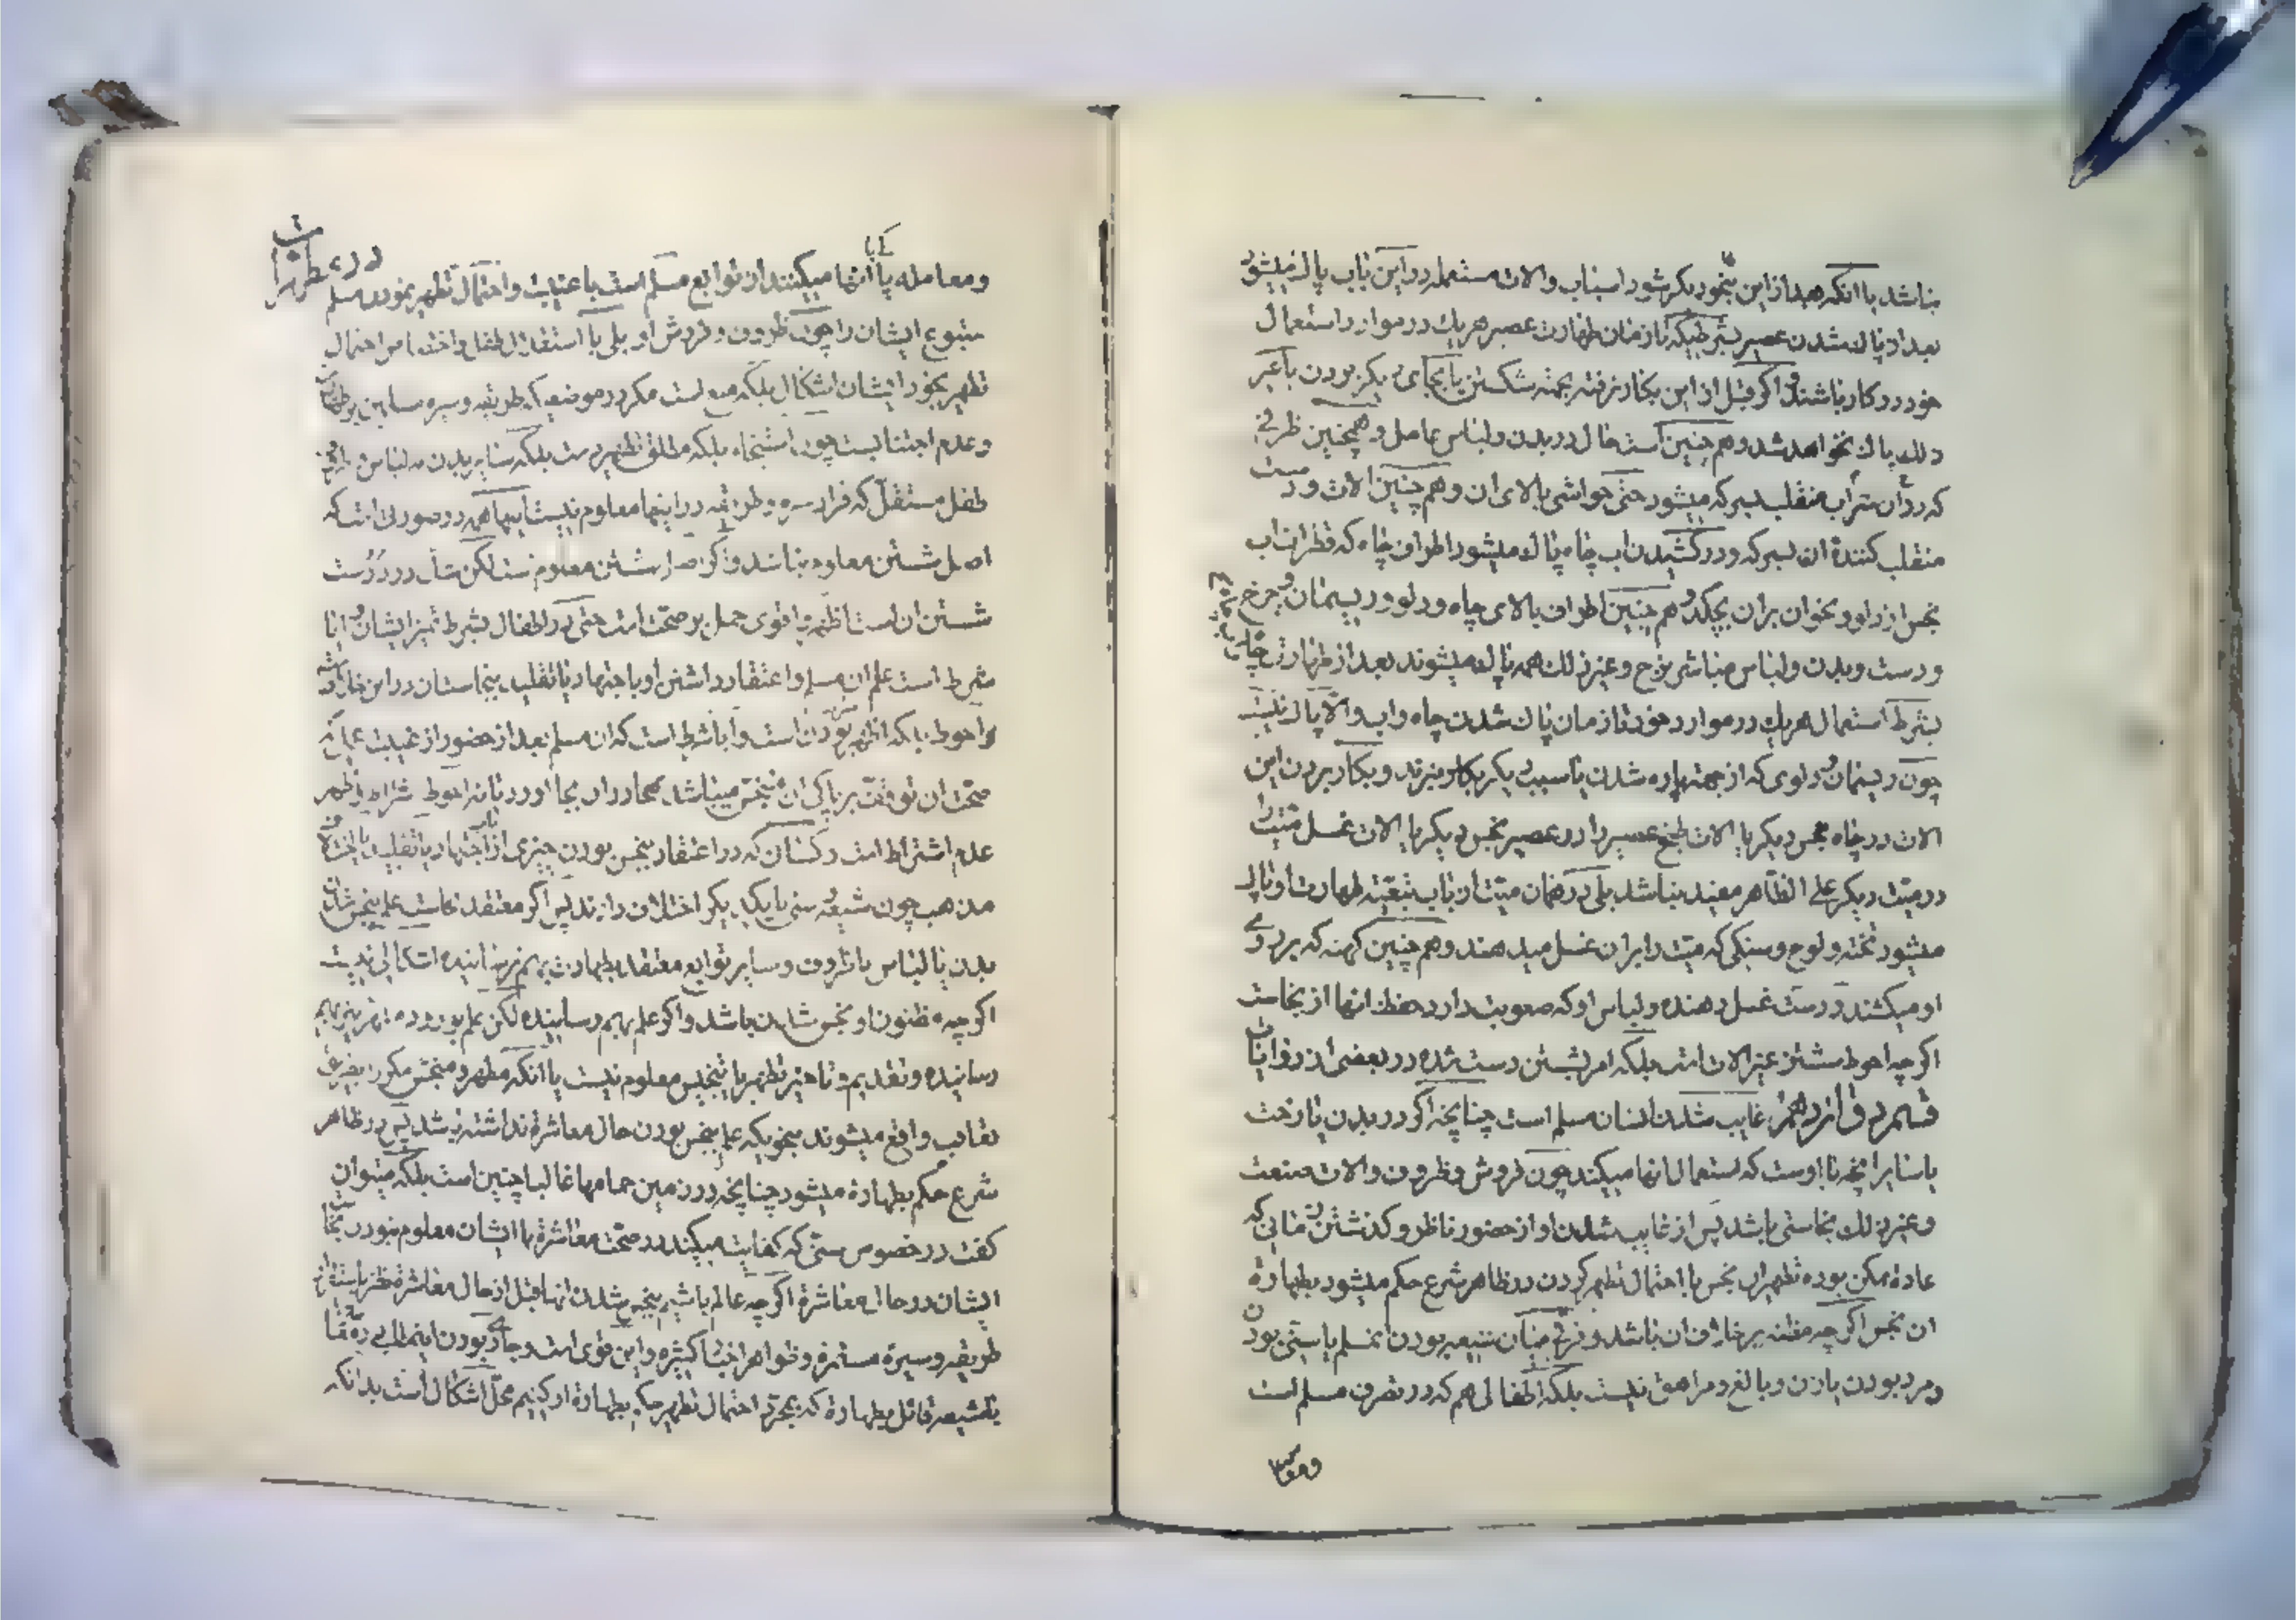 نباشد یا آنکه بعد از این بنحو دیگر شود اسباب و الات مستعمله در این باب پاک میشود
بعد از پاک شدن عصیر بشرطیکه تا زمان طهارت عصیر هر یک در موارد استعمال
خود در کار باشند و اگر قبل از این بکار نرفته بجهته شکستن یا بجای دیگر بودن یا غیر
ذلک پاک نخواهد شد و هم چنین است حال در بدن و لباس عامل و همچنین ظرفی
که در آن شراب منقلب بسرکه میشود حتی حواشی بالای ان و هم چنین الات و دست
منقلب کنندۀ ان بسرکه و در کشیدن اب چاه پاک میشود اطراف چاه که قطرات اب
نجس از دلو و نحو ان بران بچکد و هم چنین اطراف بالای چاه و دلو و ریسمان و چرخ
و دست و بدن و لباس مباشر نزح و غیر ذلک همه پاک میشوند بعد از طهارت چاه
بشرط استعمال هر یک در موارد خود تا زمان پاک شدن چاه و اب و الا پاک نیست
چون ریسمان و دلوی که از جهته پاره شدن یا سبب دیگر بکار نبرند و بکار بردن این
الات در چاه نجس دیگر یا الات طبخ عصیر را در عصیر نجس دیگر یا الات غسل میت را
در میت دیگر علی الظاهر مفید نباشد بلی در همان میت از باب تبعیّته طهارت او پاک
میشود تخته و لوح و سنکی که میت را بران غسل میدهند و هم چنین کهنه که بر روی
او میکشند و دست غسل دهنده و لباس او که صعوبت دارد حفظ انها از نجاست
اگر چه احوط شستن غیر الات است بلکه امر بشستن دست شده در بعضی از روایات
قسم دوازدهم غایب شدن انسان مسلم است چنانچه اگر در بدن یا رخت
یا سایر انچه با اوست که استعمال انها میکند چون فروش و ظروف و الات صنعت
و غیر ذلک نجاستی باشد پس از غایب شدن او از حضور ناظر و کذشتن زمانی که
عادة ممکن بوده تطهیر ان نجس با احتمال تطهیر کردن در ظاهر شرع حکم میشود بطهارة
ان نجس اگر چه مظنه بر خلاف ان باشد و فرقی میان شیعه بودن ان مسلم یا سنی بودن
و مرد بودن یا زن و بالغ و مراهق نیست بلکه اطفالی هم که در تصرف مسلم است
در مطهرات
و معامله با انها میکنند از توابع مسلم است با غیبت و احتمال تطهیر نمودن مسلم
متبوع ایشان را چون ظروف و فروش او بلی با استقلال طفل و احتمال
تطهیر بخود ایشان اشکال بلکه منع است مگر در موضعی که طریقه و سیره مسلمین بر طهارت
و عدم اجتنابست چون استنجاء بلکه مطلق تطهیر دست بلکه سایر بدن نه لباس و ظروف
طفل مستقل که قرار سیره و طریقه در اینها معلوم نیست اینها همه در صورتی است که
اصل شستن معلوم نباشد و اگر اصل شستن معلوم است لکن شک در درست
شستن ان است اقوی حمل بر صحت است حتی در اطفال بشرط تمیز ایشان و ایا
شرط است علم ان مسلم و اعتقاد داشتن او باجتهاد یا تقلید بنجاست ان در این خلاف
و احوط بلکه اظهر بودن است و ایا شرط است که ان مسلم بعد از حضور از غیبت عملی که
صحت ان توقف بر پاکی ان متنجس میباشد بجا اورد یا نه احوط شرط و اظهر
عدم اشتراط است و کسانی که در اعتقاد نجس بودن چیزی از باب اجتهاد یا تقلید یا اختلاف
مذهب چون شیعه و سنی با یکدیگر اختلاف دارند پس اگر معتقد نجاست علم بنجس شدن
بدن یا لباس یا ظروف و سایر توابع معتقد بطهارت بهم نرسانیده اشکالی نیست
اگر چه مظنون او نجس شدن باشد و اگر علم بهم رسانیده لکن علم بورود مطهر نیز بهم
رسانیده و تقدیم و تاخیر تطهیر یا تنجیس معلوم نیست یا انکه مطهر و منجس مکرر بضرب
تعاقب واقع میشوند بنحویکه علم بنجس بودن حال معاشرة نداشته باشد پس در ظاهر
شرع حکم بطهارة میشود چنانچه در زمین حمامها غالبا چنین است بلکه میتوان
کفت در خصوص سنی که کفایت میکند در صحت معاشرة با ایشان معلوم نبودن نجاست
ایشان در حال معاشرة اگر چه عالم باشیم بنجس شدن انها قبل از حال معاشرة نظر باستقرار
طریقه و سیرۀ مستمره و ظواهر اخبار کثیره و این قوی است و جاری بودن این مطلب در
شیعه قائل بطهارة که بمجرد احتمال تطهیر حکم بطهارة او کنیم محل اشکال است بدانکه